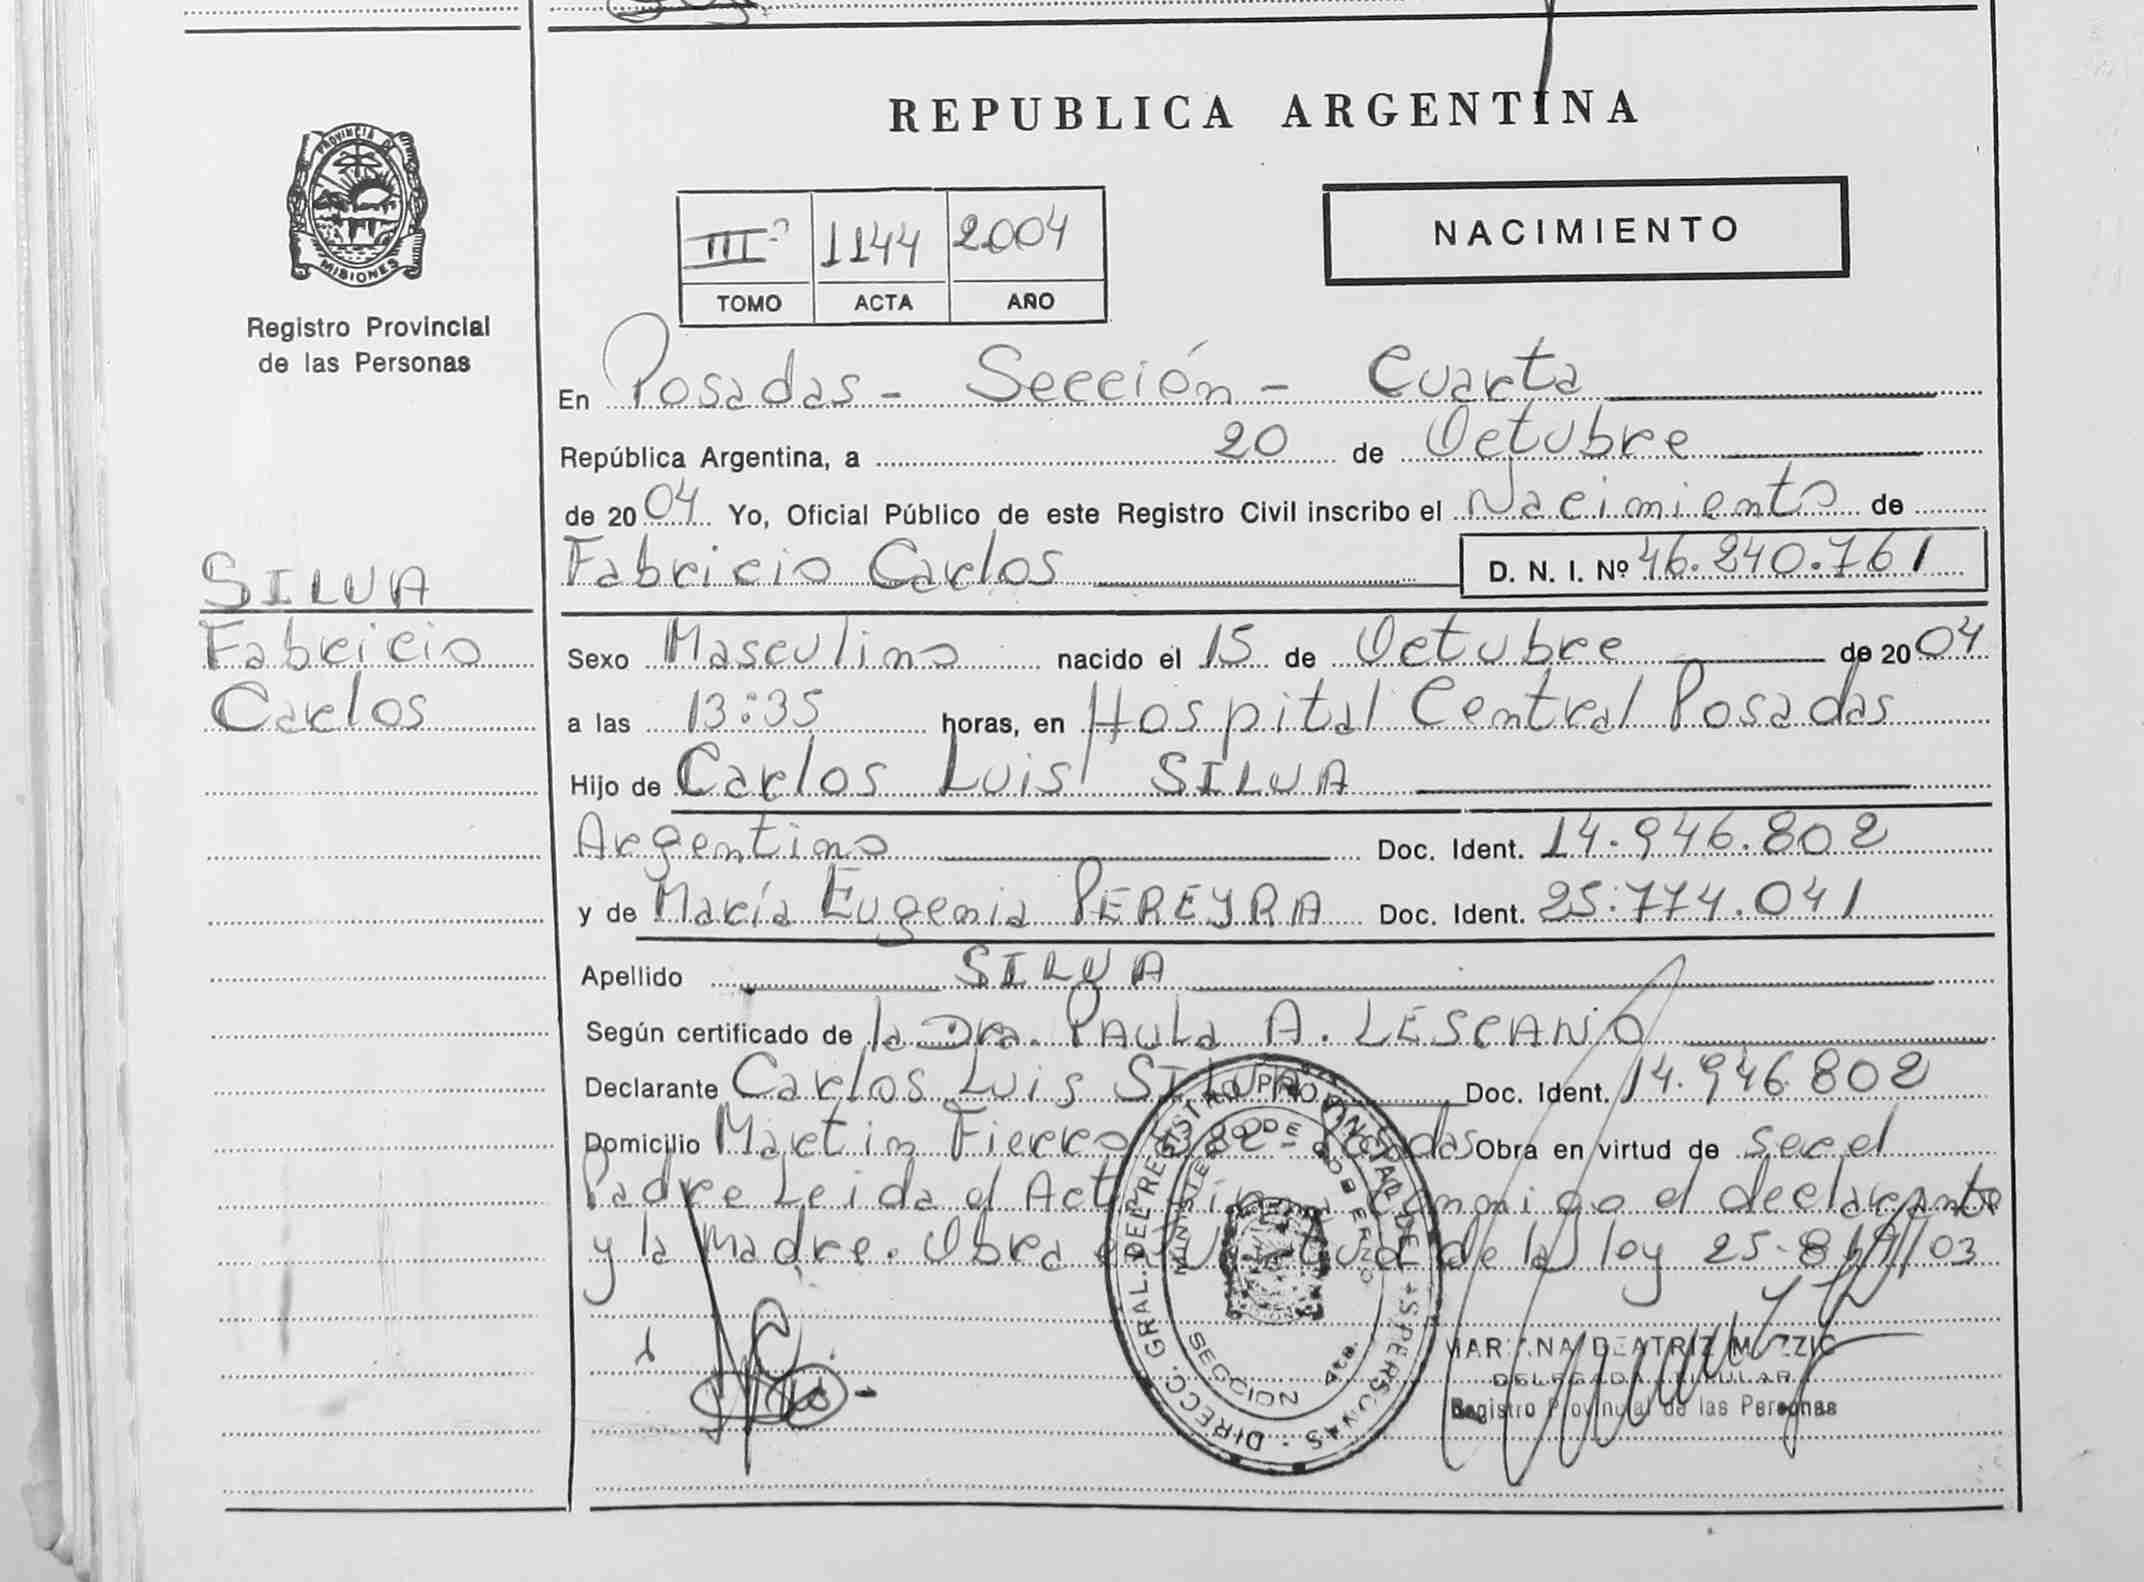 REPUBLICA ARGENTINA
PROVINCIA DE
MISIONES
Registro Provincial
de las Personas
III 1144 2004
TOMO ACTA AÑO
NACIMIENTO
En Posadas - Sección - Cuarta
República Argentina, a 20 de Octubre
de 2004 Yo, Oficial Público de este Registro Civil inscribo el Nacimiento de
Fabricio Carlos D. N. I. Nº 46.240.761
SILVA
Fabricio
Carlos
Sexo Masculino nacido el 15 de Octubre de 2004
a las 13:35 horas, en Hospital Central Posadas
Hijo de Carlos Luis SILVA
Argentino Doc. Ident. 14.946.802
y de María Eugenia PEREYRA Doc. Ident. 25.774.041
Apellido SILVA
Según certificado de la Dra. PAULA A. LESCANO
Declarante Carlos Luis SILVA Doc. Ident. 14.946.802
Domicilio Martin Fierro Posadas Obra en virtud de ser el
Padre Leida el Acta conmigo el declarante
y la Madre. Obra en virtud de la ley 25.819/03
DIRECC. GRAL. DEL REGISTRO PROVINCIAL DE LAS PERSONAS
MINISTERIO DE GOBIERNO
SECCION 4ta.
BEATRIZ
DELEGADA TITULAR
Registro Provincial de las Personas